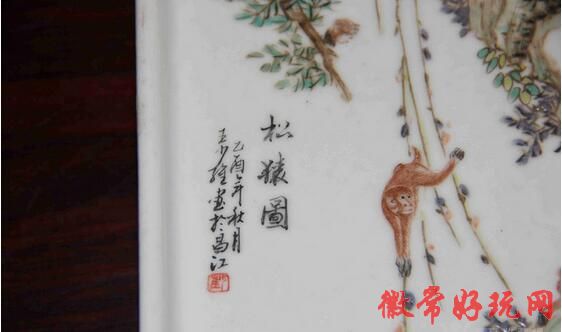 松猿圖
乙酉年秋月
王少維畫於昌江
徽常好玩网